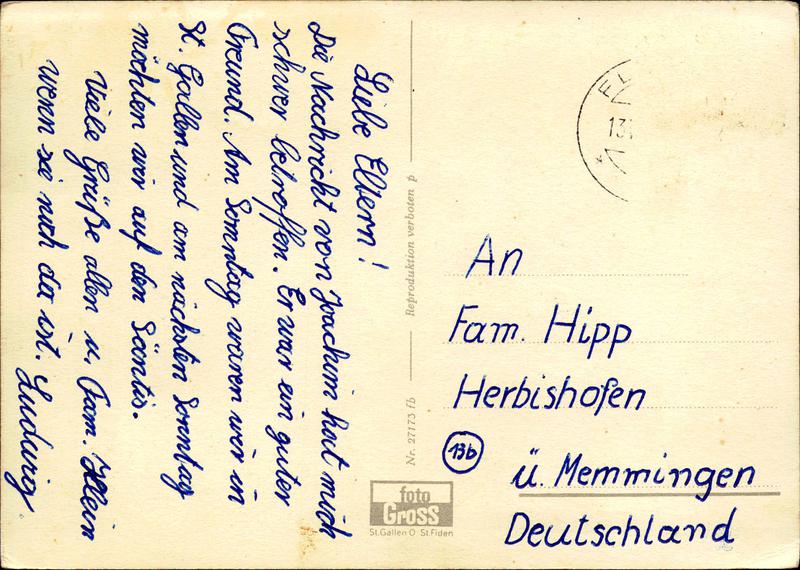 Liebe Eltern!
Die Nachricht von Joachim hat mich
schwer betroffen. Er war ein guter
Freund. Am Sonntag waren wir in
St. Gallen und am nächsten Sonntag
möchten wir auf den Säntis.
Viele Grüße allen u. Fam. Klein
wenn sie noch da ist. Ludwig
Nr. 27173 fb
Reproduktion verboten p
foto
Gross
St.Gallen O St.Fiden
13
An
Fam. Hipp
Herbishofen
13b
ü. Memmingen
Deutschland